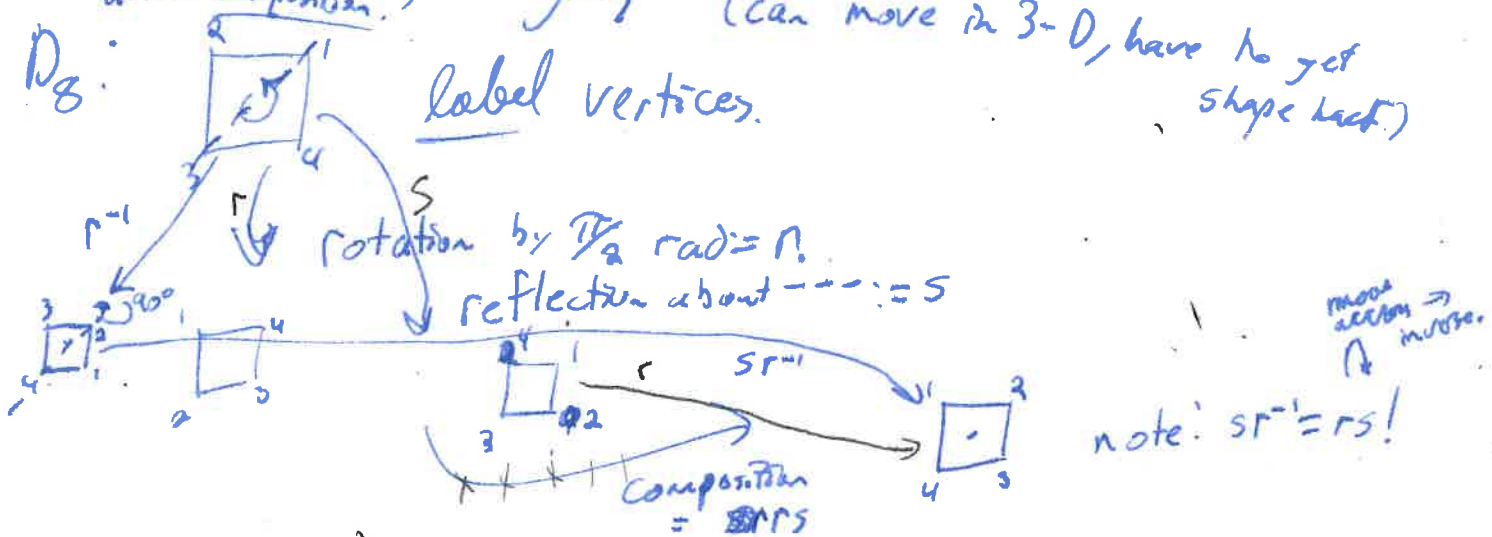 (can move in 3-D, have to get
D8:
2
1
3
4
label vertices.
r⁻¹
r
S
rotation by π/2 rad = r.
reflection about ---- := s
3
2
4
1
90°
1
4
2
3
4
1
3
2
r
sr⁻¹
1
2
4
3
inverse.
note: sr⁻¹ = rs!
composition
= rs